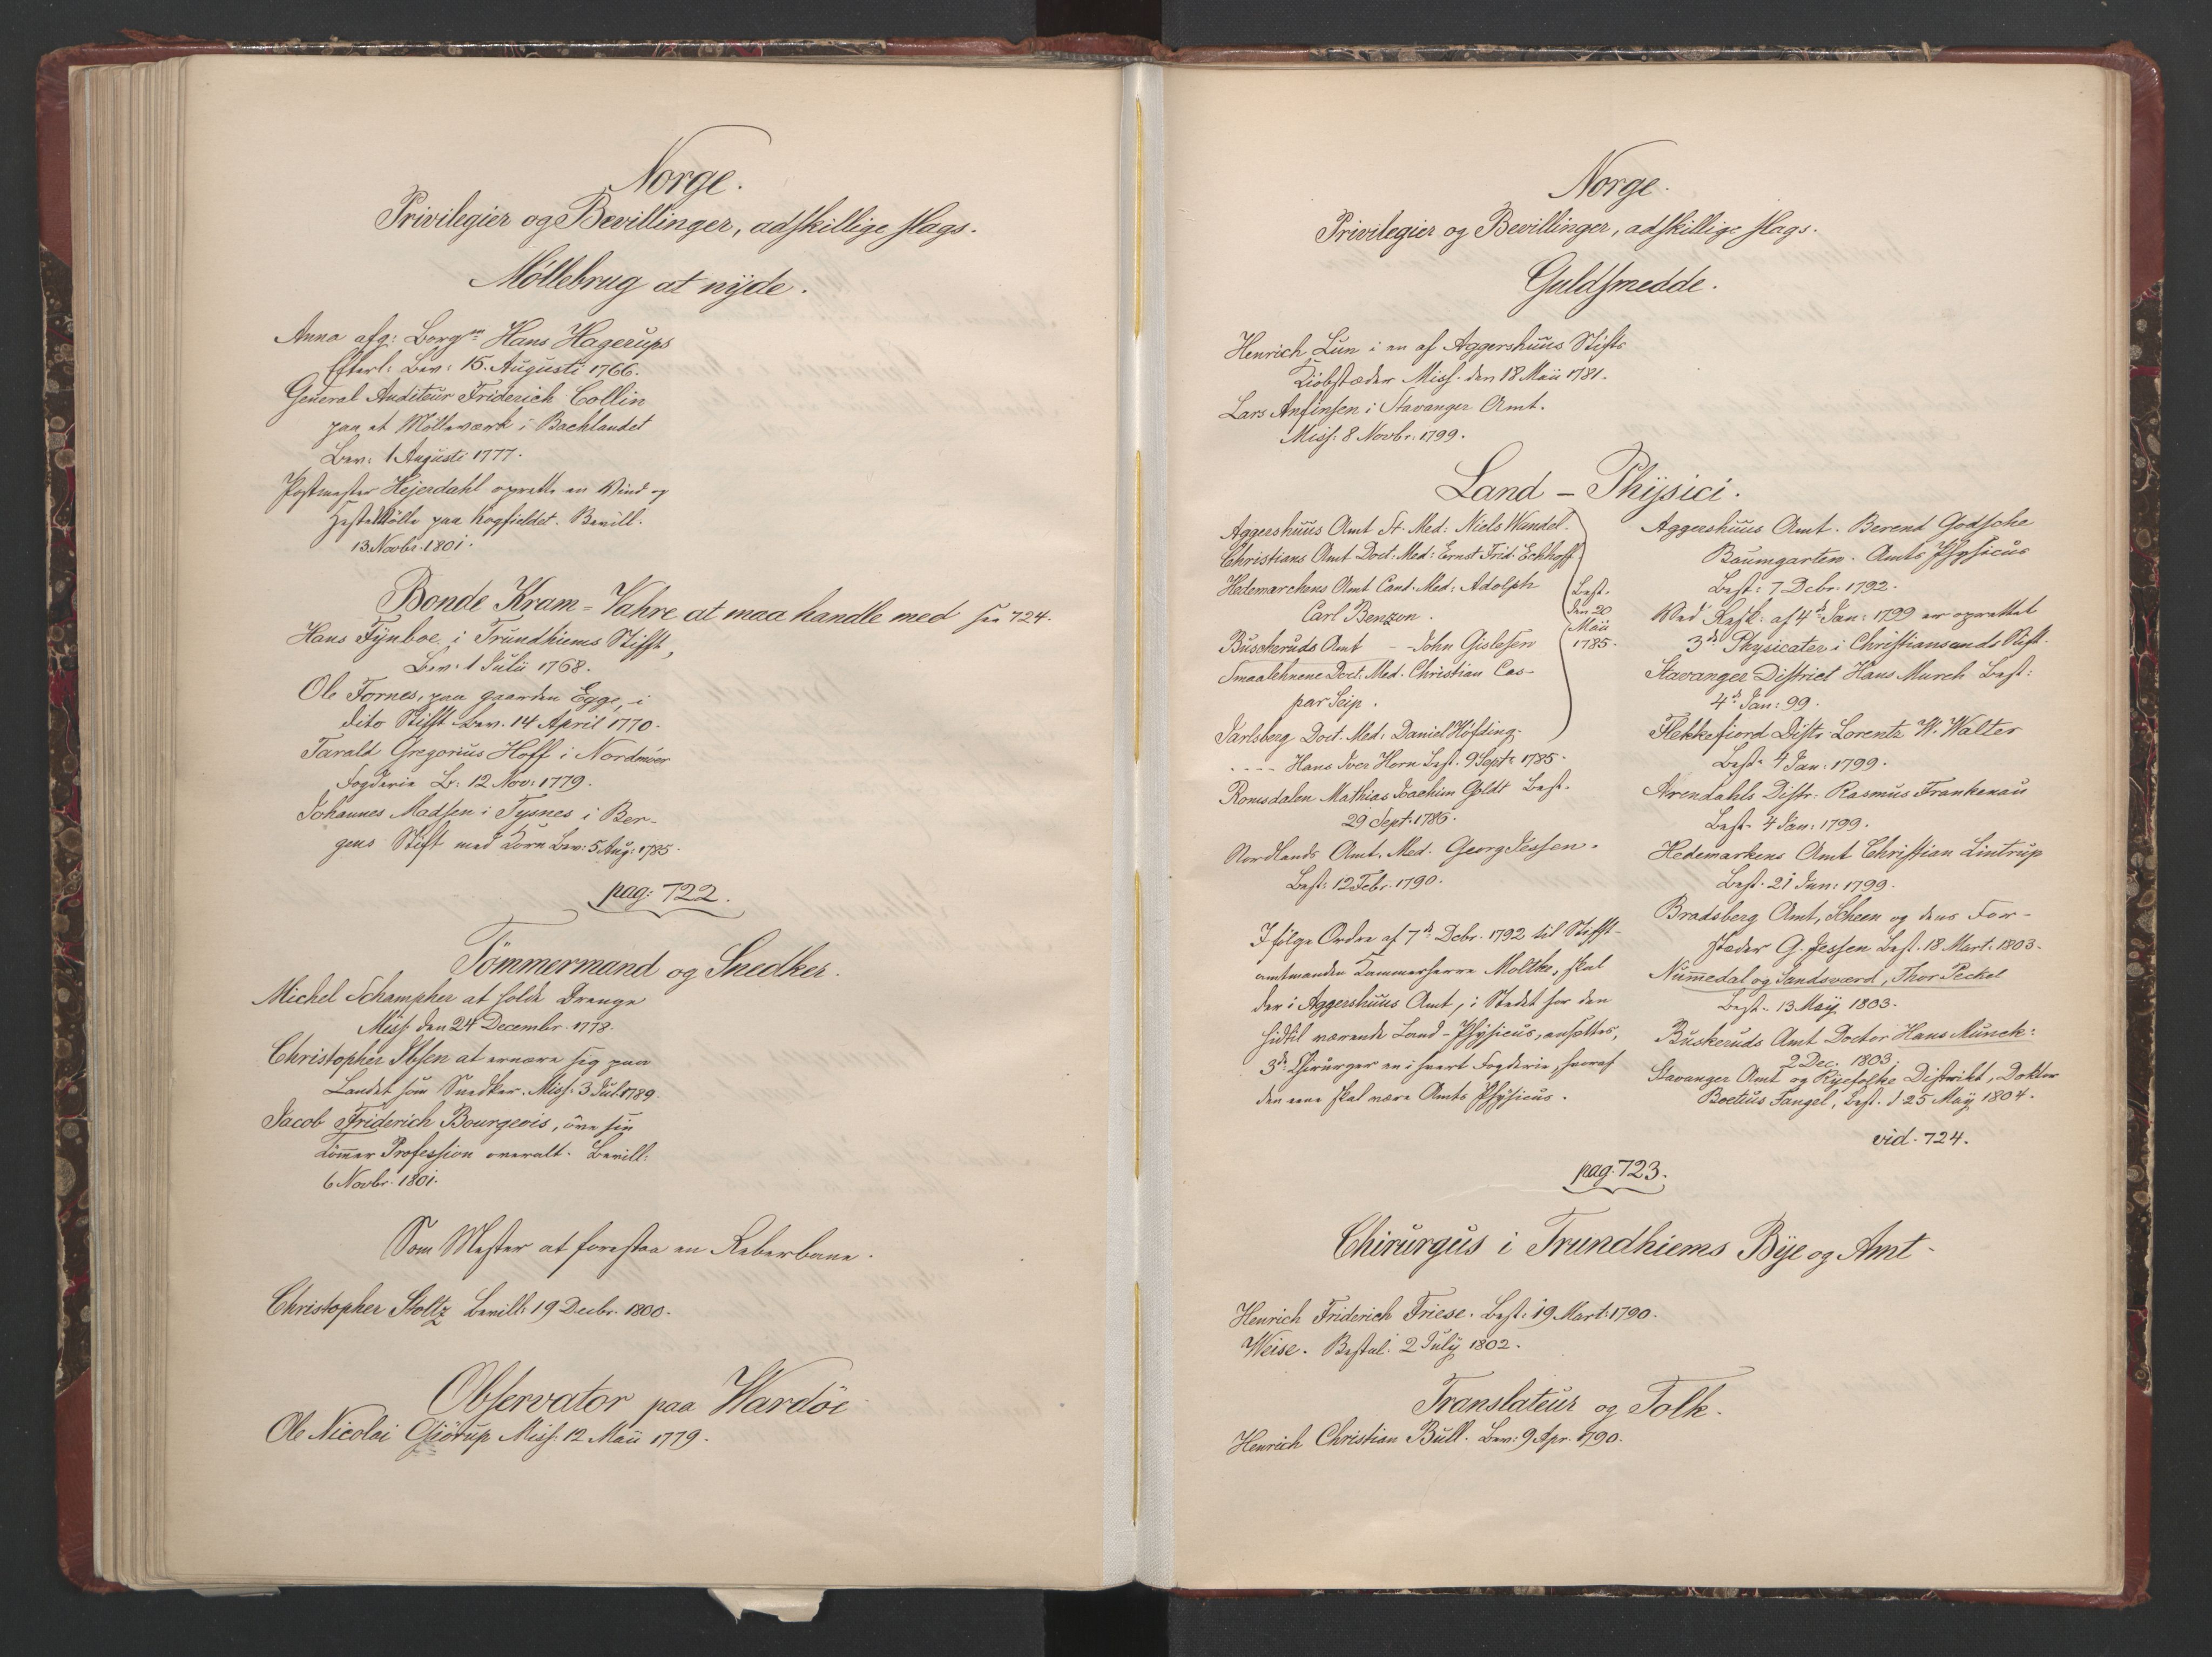 Norge.
Privilegier og Bevillinger, adskillige slags.
Möllebrug at nyde.
Anna afg: Borgm Hans Hagerups
Efterl: Bev: 15. Augusti 1766.
General Auditeur Friderich Collin
paa et Mölleværk i Bachlandet
Bev: 1 Augusti 1777.
Postmester Hejerdahl oprette en Wind og
HesteMölle paa Kogfieldet. Bevill.
13. Novbr. 1801.
Bonde Kram-Vahre at maa handle med see 724.
Hans Fynboe, i Trundhiems Stifft,
Bev: 1 Julii 1768.
Ole Fornes, paa gaarden Egge, i
dito Stifft Bev. 14 April 1770.
Tarald Gregorius Hoff i Nordmöer
Fogderie B: 12 Nov: 1779.
Johannes Madsen i Tysnes i Ber-
gens Stift med Korn Bev: 5 Aug: 1785.
pag: 722.
Tömmermand og Snedker.
Michel Schampher at holde Drenge
Miss: den 24 Decembr. 1778.
Christopher Ibsen at ernære sig paa
Landet som Snedker. Miss: 3 Jul. 1789.
Jacob Friderich Bourgeois, öve sin
Tömmer Profession overalt. Bevill:
6 Novbr. 1801.
Som Mester at forestaa en Reberbane.
Christopher Stoltz Bevill: 19 Decbr. 1800.
Observator paa Wardöe
Ole Nicolai Giörup Miss: 12 Maii 1779.
Norge.
Privilegier og Bevillinger, adskillige slags.
Guldsmedde.
Henrich Lun i en af Aggershuus Stifts
Kiöbstæder Miss: den 18 Maii 1781.
Lars Anfinsen i Stavanger Amt.
Miss: 8 Novbr: 1799.
Land-Physici.
Aggershuus Amt St. Med: Niels Wandel.
Christians Amt Doct: Med: Ernst Frid: Echhoff
Hedemarchens Amt Cand. Med: Adolph
Carl Benzon.
Buscheruds Amt - - John Gislesen
Smaalehnene Doct. Med. Christian Cas-
par Seip.
Jarlsberg Doct. Med: Daniel Höfding.
Best. den 20 Maii 1785.
- - - - Hans Iver Horn Best. 9 Septr 1785.
Romsdalen Mathias Joachim Goldt Best.
29 Sept. 1786.
Nordlands Amt. Med. Georg Jessen.
Best: 12 Febr. 1790.
Ifölge Ordre af 7de Dcbr. 1792 til Stifft-
amtmanden Kammerherre Moltke, skal
der i Aggershuus Amt, i Stedet for den
hidtil værende Land-Physicus, ansættes,
3de Chirurger en i hvert Fogderie, hvoraf
den eene skal være Amts Physicus.
Aggershuus Amt. Berend Godsche
Baumgarten. Amts Physicus
Best: 7 Dcbr. 1792.
Ved Resk: af 4de Jan: 1799 er oprettet
3de Physicater i Christiansands Stift.
Stavanger District Hans Munch Best:
4de Jan: 99.
Flekkefiord Distr: Lorentz W. Walter
Best. 4 Jan: 1799.
Arendahls Distr: Rasmus Frankenau
Best. 4 Jan: 1799.
Hedemarkens Amt Christian Lintrup
Best. 21 Jun: 1799.
Bradsberg Amt, Scheen og dens For-
stæder G. Jessen Best. 18 Mart. 1803.
Nummedal og Sandsværd, Thor Peckel
Best. 13 May 1803.
Buskeruds Amt Doctor Hans Munck:
2 Dec. 1803.
Stavanger Amt og Ryefolke Distrikt, Doktor
Boetius Fangel, Best. d 25 May 1804.
vid. 724.
pag. 723.
Chirurgus i Trundhiems Bye og Amt.
Henrich Friderich Friese. Best: 19 Mart: 1790.
Weise. Bestal. 2 July 1802.
Translateur og Tolk.
Henrich Christian Bull. Bev: 9 Apr. 1790.